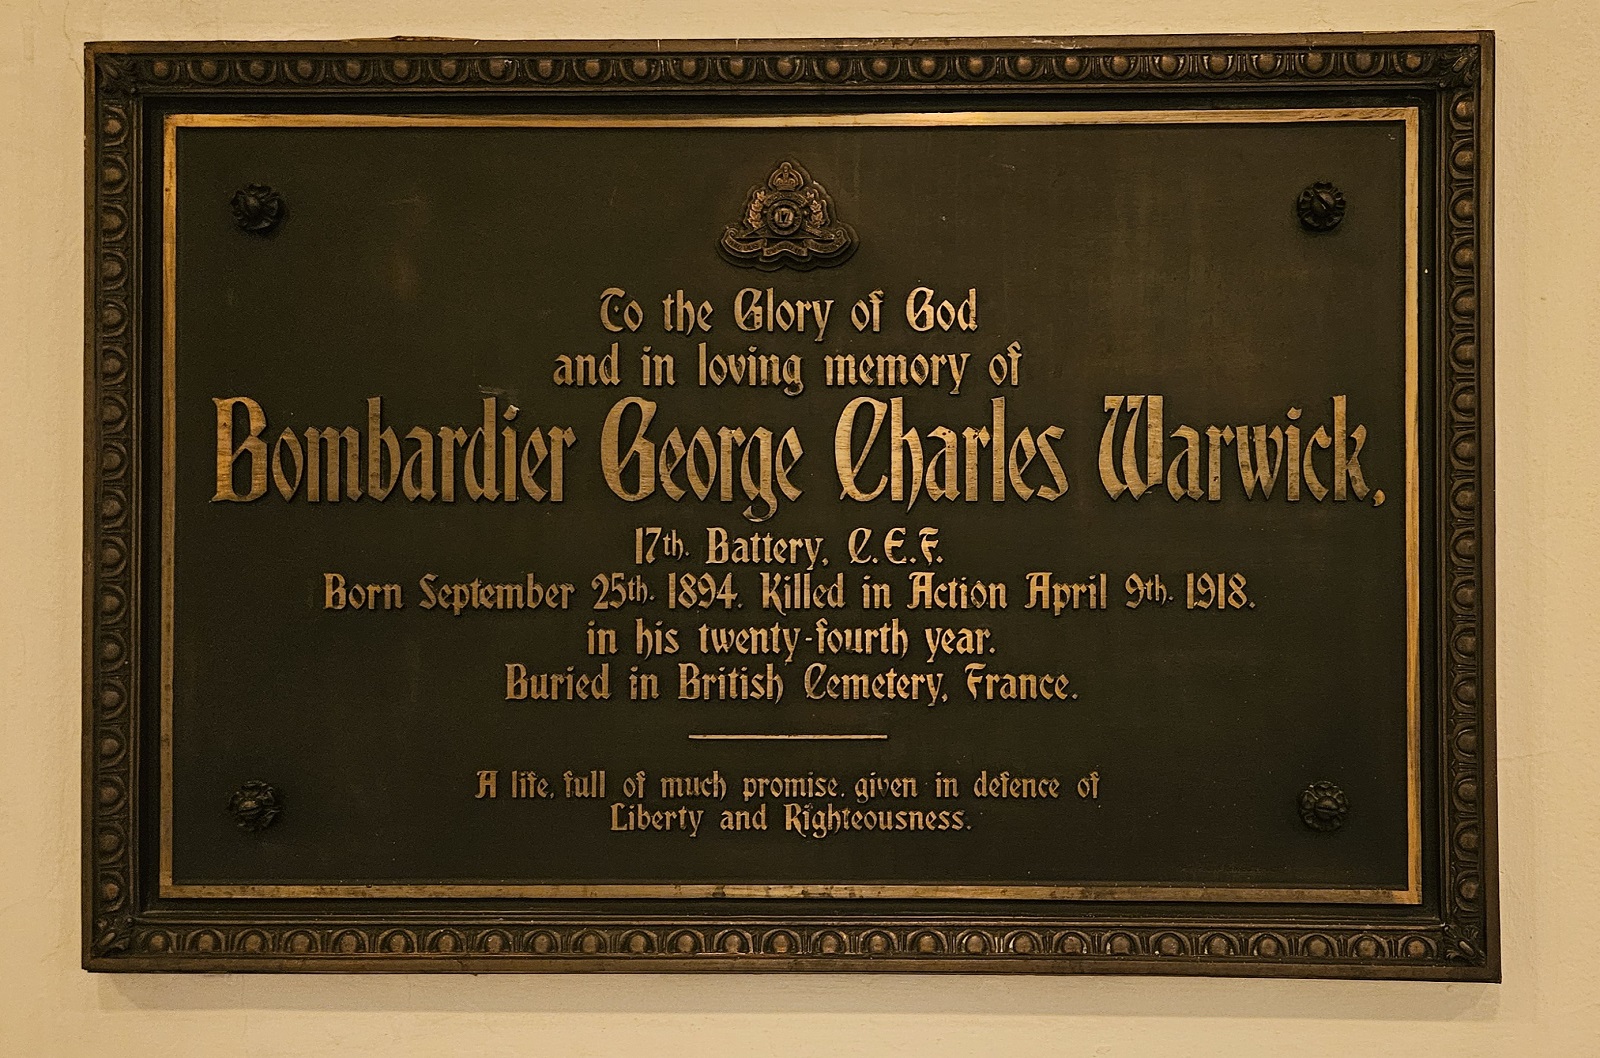 17
To the Glory of God
and in loving memory of
Bombardier George Charles Warwick,
17th. Battery, C.E.F.
Born September 25th. 1894. Killed in Action April 9th. 1918.
in his twenty-fourth year.
Buried in British Cemetery, France.
A life, full of much promise, given in defence of
Liberty and Righteousness.